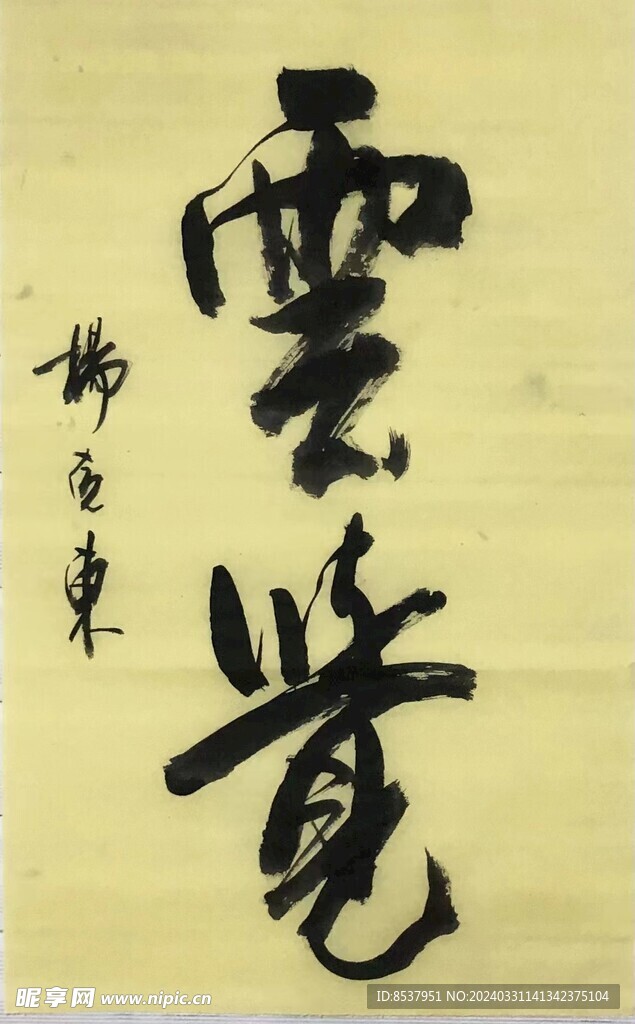 雲覽
楊克東
昵享网 www.nipic.cn
ID:8537951 NO:20240331141342375104